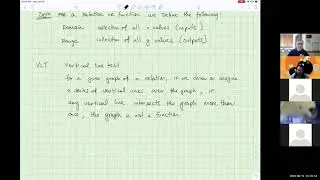 Defn For a relation or function we define the following:
Domain collection of all x values (inputs)
Range collection of all y values (outputs)
VLT Vertical line test
for a given graph of a relation, if we draw or imagine
a series of vertical lines over the graph, if
any vertical line intersects the graph more than
once, the graph is not a function.